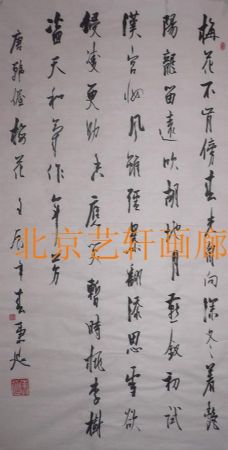 梅花不肯傍春光自向深冬着艷
陽龍笛遠吹胡地月燕釵初試
漢宮妝風雖強暴翻添思雪欲
侵凌更助香應笑暫時桃李樹
盜天和氣作年芳
唐韓偓梅花 壬辰年春
北京艺轩画廊